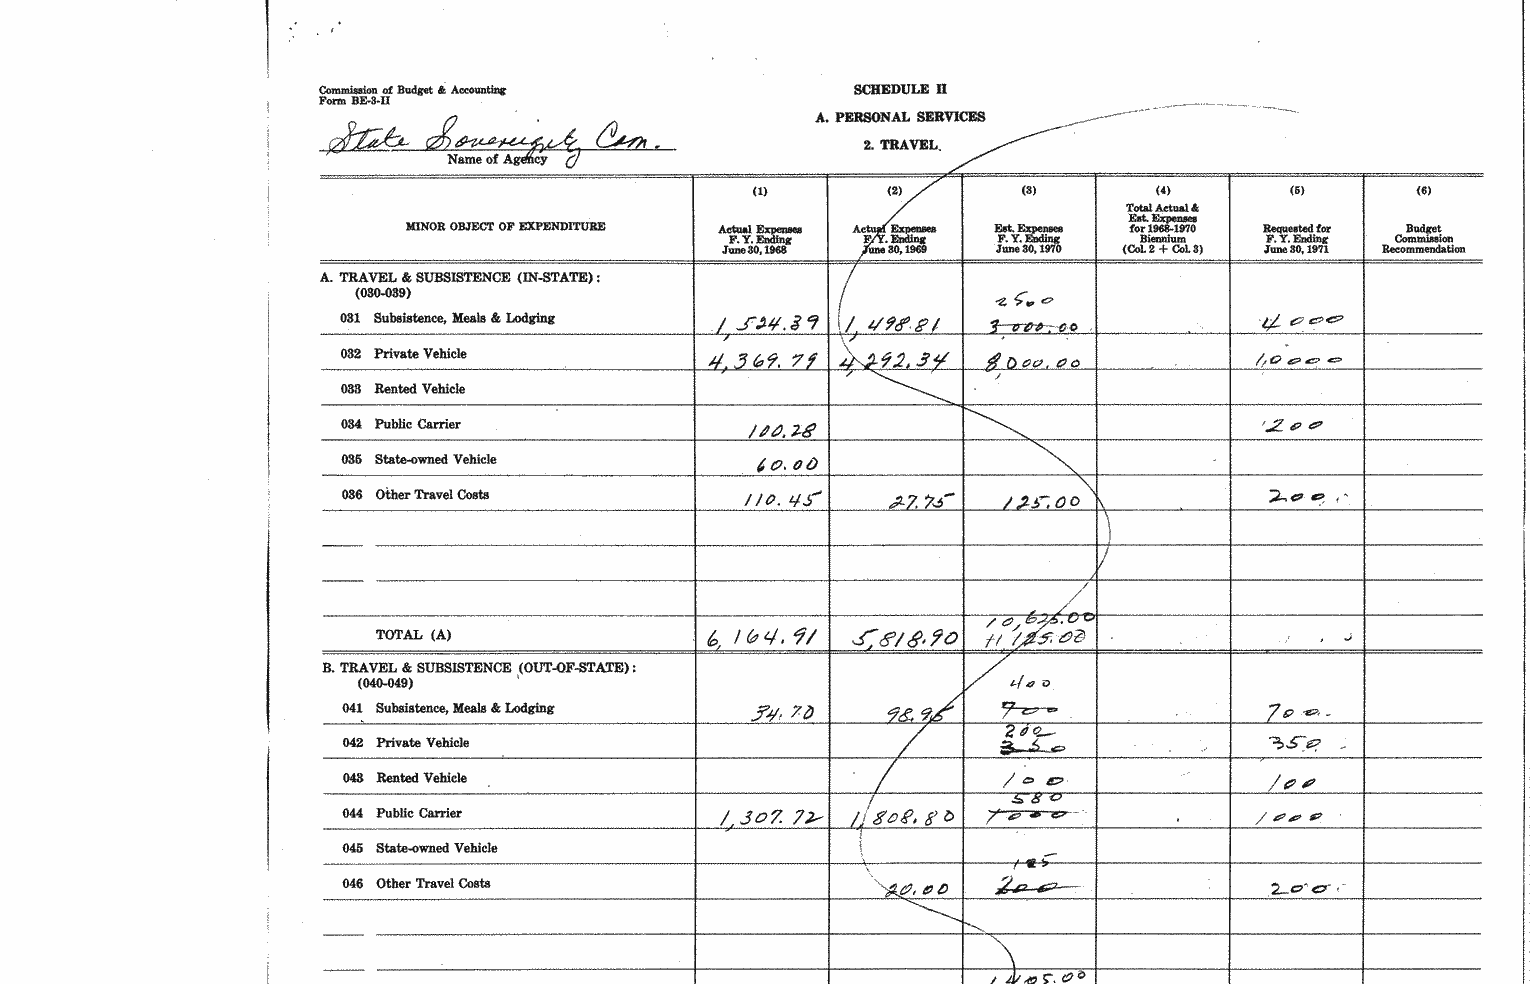 Commission of Budget & Accounting
Form BE-3-II
SCHEDULE II
A. PERSONAL SERVICES
2. TRAVEL
State Sovereignty Com.
Name of Agency
MINOR OBJECT OF EXPENDITURE
(1)
Actual Expenses
F. Y. Ending
June 30, 1968
(2)
Actual Expenses
F. Y. Ending
June 30, 1969
(3)
Est. Expenses
F. Y. Ending
June 30, 1970
(4)
Total Actual &
Est. Expenses
for 1968-1970
Biennium
(Col. 2 + Col. 3)
(5)
Requested for
F. Y. Ending
June 30, 1971
(6)
Budget
Commission
Recommendation
A. TRAVEL & SUBSISTENCE (IN-STATE):
(030-039)
2500
031 Subsistence, Meals & Lodging 1,524.39 1,498.81 3000.00 4000
032 Private Vehicle 4,369.79 4,292.34 8,000.00 10000
033 Rented Vehicle
034 Public Carrier 100.28 200
035 State-owned Vehicle 60.00
036 Other Travel Costs 110.45 27.75 125.00 200
10,625.00
TOTAL (A) 6,164.91 5,818.90 11,125.00
B. TRAVEL & SUBSISTENCE (OUT-OF-STATE):
(040-049)
400
041 Subsistence, Meals & Lodging 34.70 98.95 700 700
200
042 Private Vehicle 350 350
043 Rented Vehicle 100 100
580
044 Public Carrier 1,307.72 1,808.80 1000 1000
045 State-owned Vehicle
125
046 Other Travel Costs 20.00 200 200
1405.00